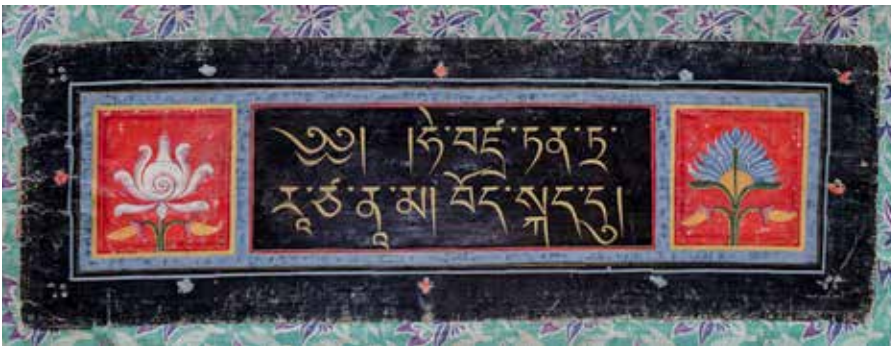 ༄༅། །ཧེ་བཛྲ་ཏན་ཏྲ་
རཱ་ཛ་ནཱ་མ། བོད་སྐད་དུ།